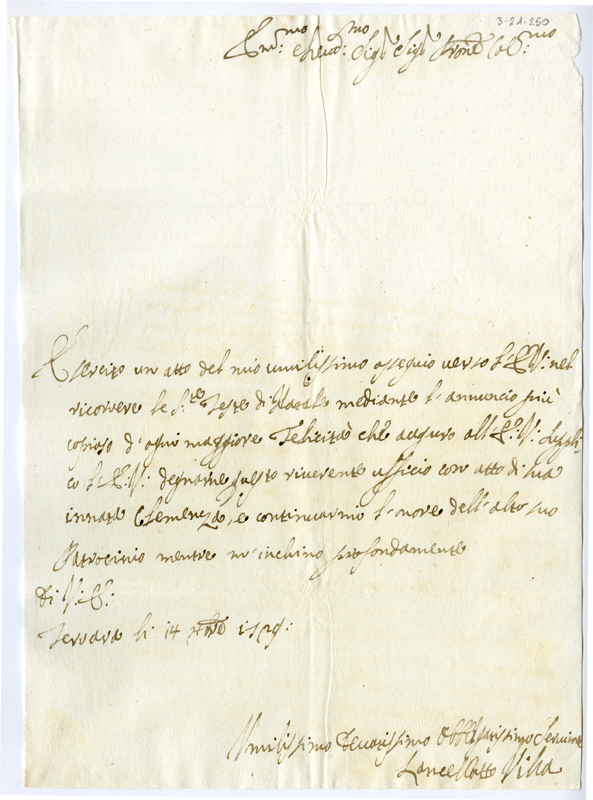 3-21-250
Em.mo e Reud.mo Sig.r Sig.r Prone Col.mo
Esercizo un atto del mio umilissimo osseguio verso l'E: V: nel
ricorrere le S.te Feste di Natale mediante l'annuncio più
copioso d'ogni maggiore Felicità che auguro all'E: V: Suppli-
co l'E: V: degnarne questo riverente ufficio con atto di sua
innata Clemenza, e continuarmi l'onore dell'alto suo
Patrocinio mentre m'inchino profondamente
Di V: E:
Ferrara li 14 Xbre
Umilissimo Deuotissimo Obbligatissimo Seruitore
Lancellotto Villa